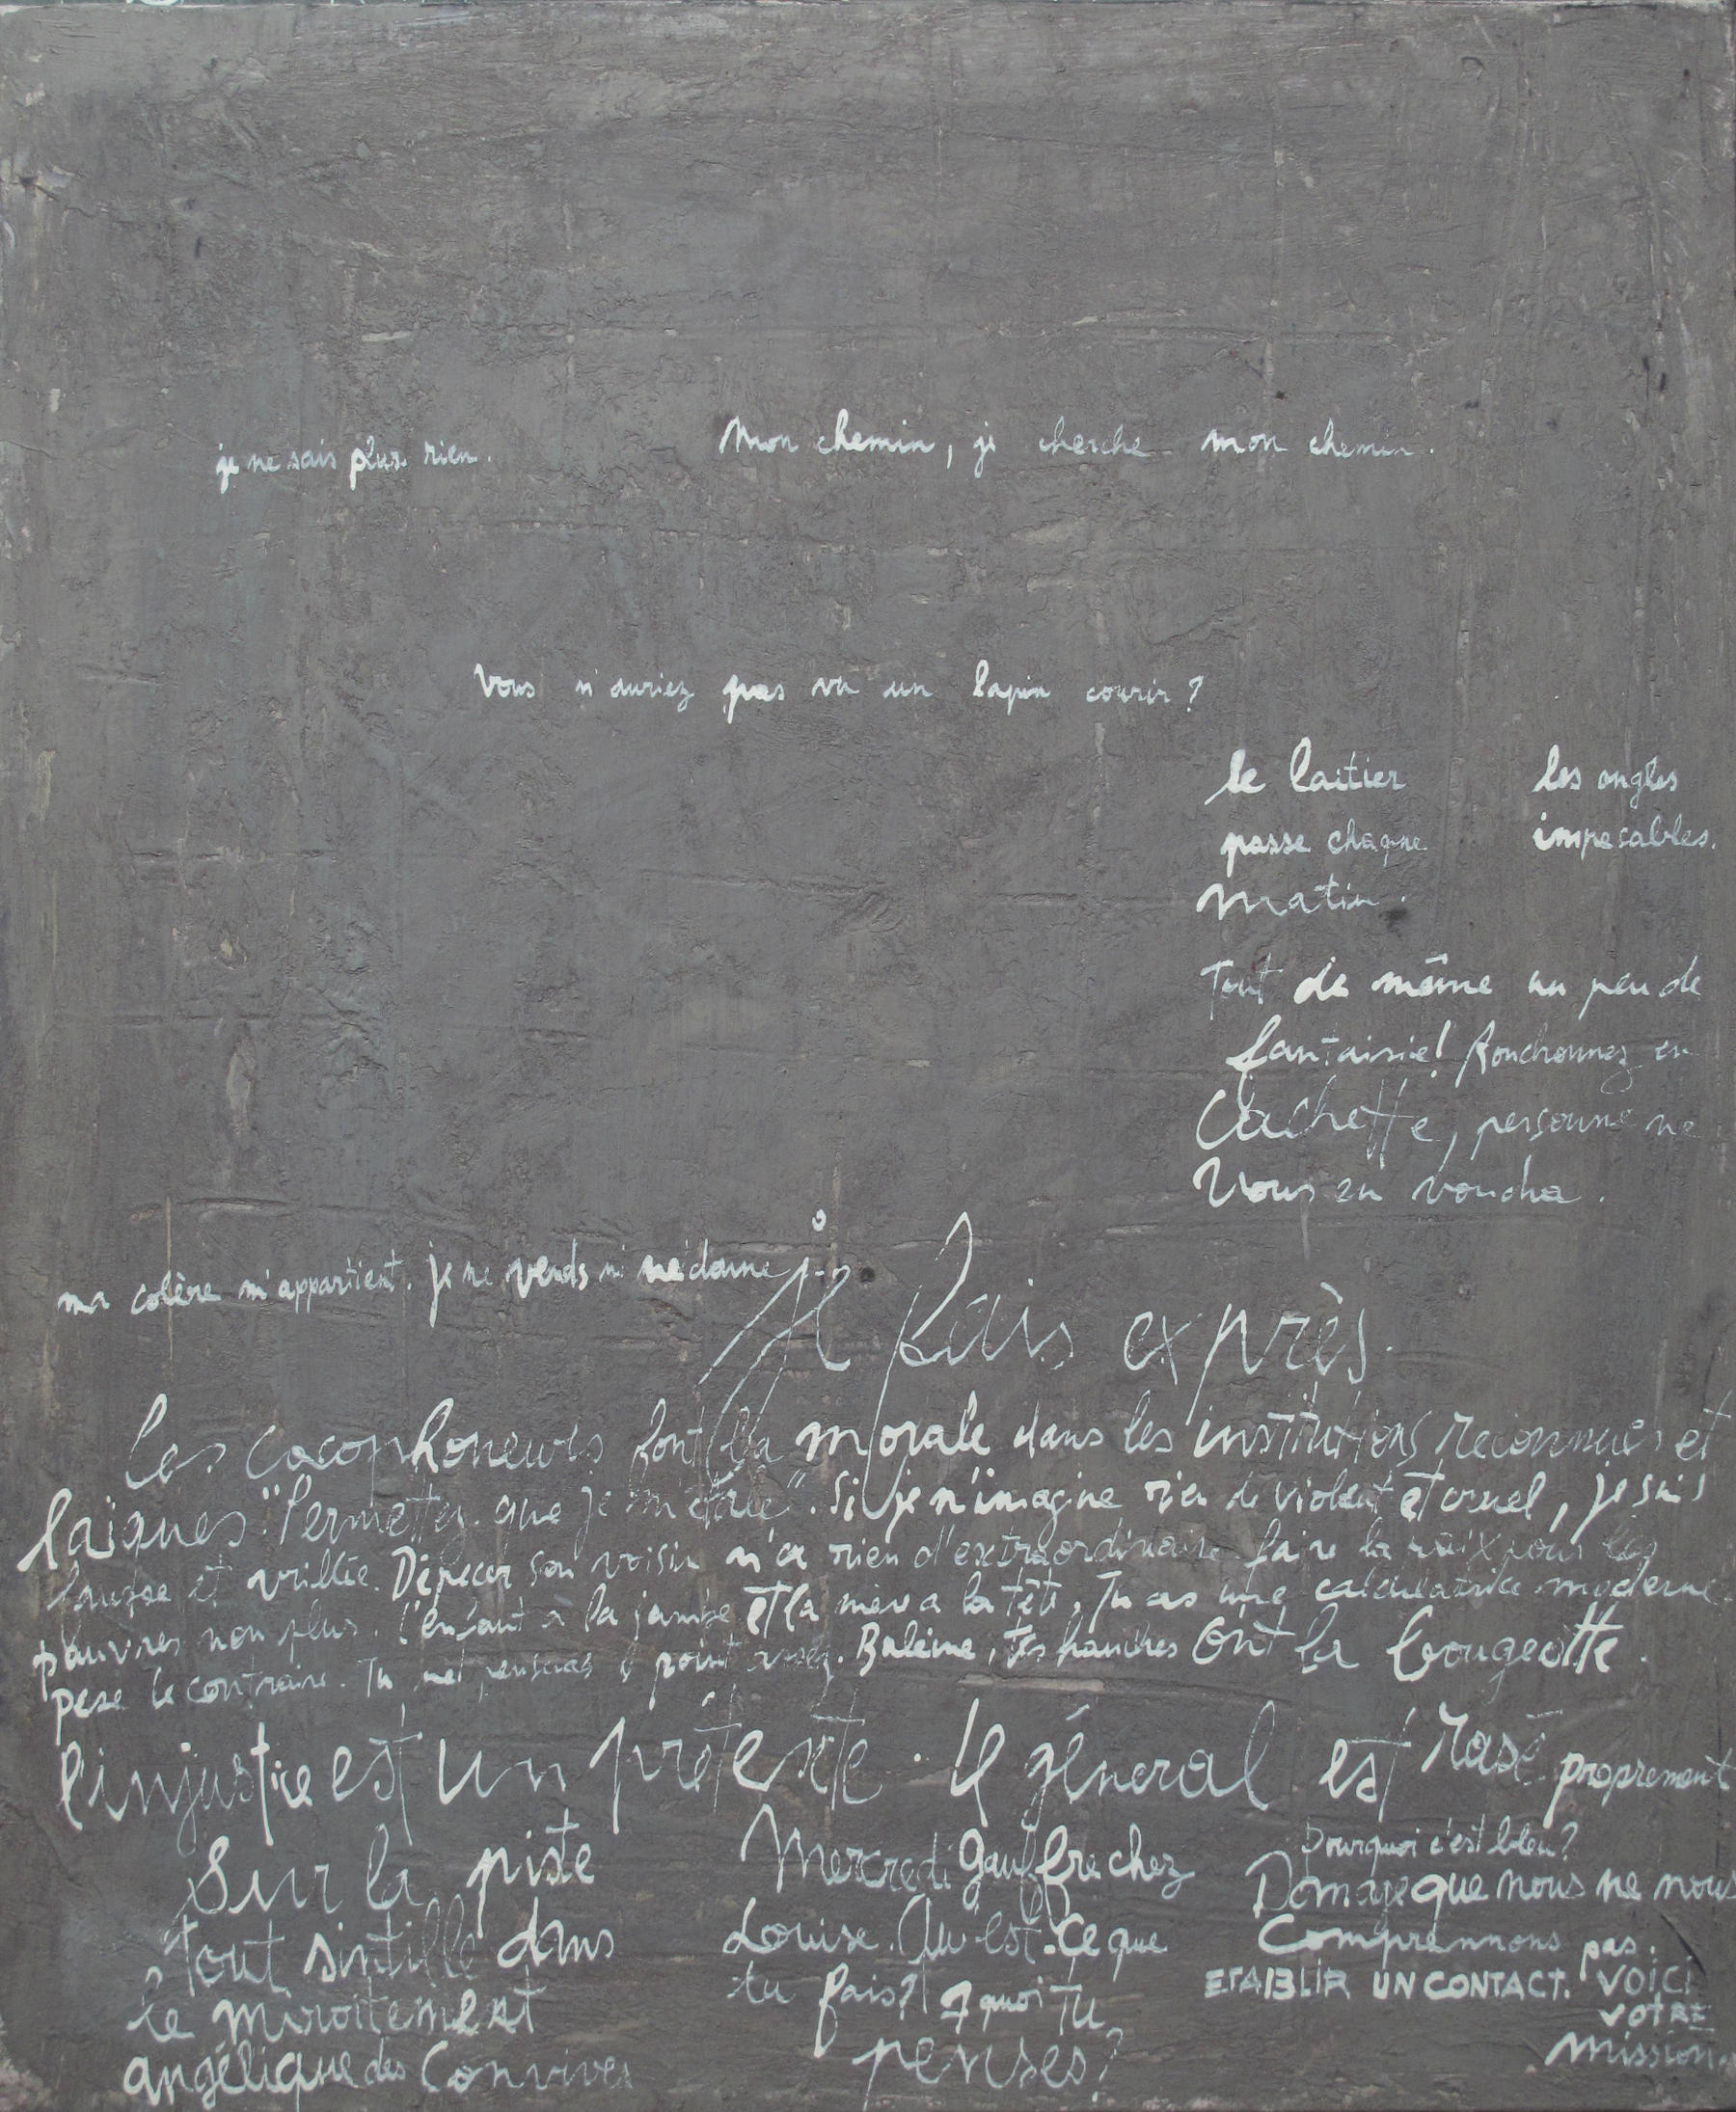 je ne sais plus rien.
Mon chemin, je cherche mon chemin.
Vous n'auriez pas vu un lapin courir?
le laitier
passe chaque
matin.
les ongles
impecables.
Tout de même un peu de
fantaisie! Ronchonnez en
Cachette, personne ne
Vous en voudra.
ma colère m'appartient. je ne vends ni ne donne
je fais exprès.
les cacophoneurs font la morale dans les institutions reconnues et
laïques "Permettez que je m'étale". Si je n'imagine rien de violent et cruel, je suis
fausse et vrillée. Dépecer son voisin n'a rien d'extraordinaire faire la paix pour les
pauvres non plus. l'enfant a la jambe et la mère a la tête. Tu as une calculatrice moderne
pese le contraire. Tu ne penseras point assez. Baleine, tes hanches ont la bougeotte.
l'injustice est un prétexte. le général est rasé proprement
Sur la piste
tout sintille dans
le miroitement
angélique des Convives
Mercredi gauffre chez
Louise. Qu'est-ce que
tu fais? A quoi tu
penses?
Pourquoi c'est bleu?
Domage que nous ne nous
comprennons pas.
ETABLIR UN CONTACT. VOICI
VOTRE
mission